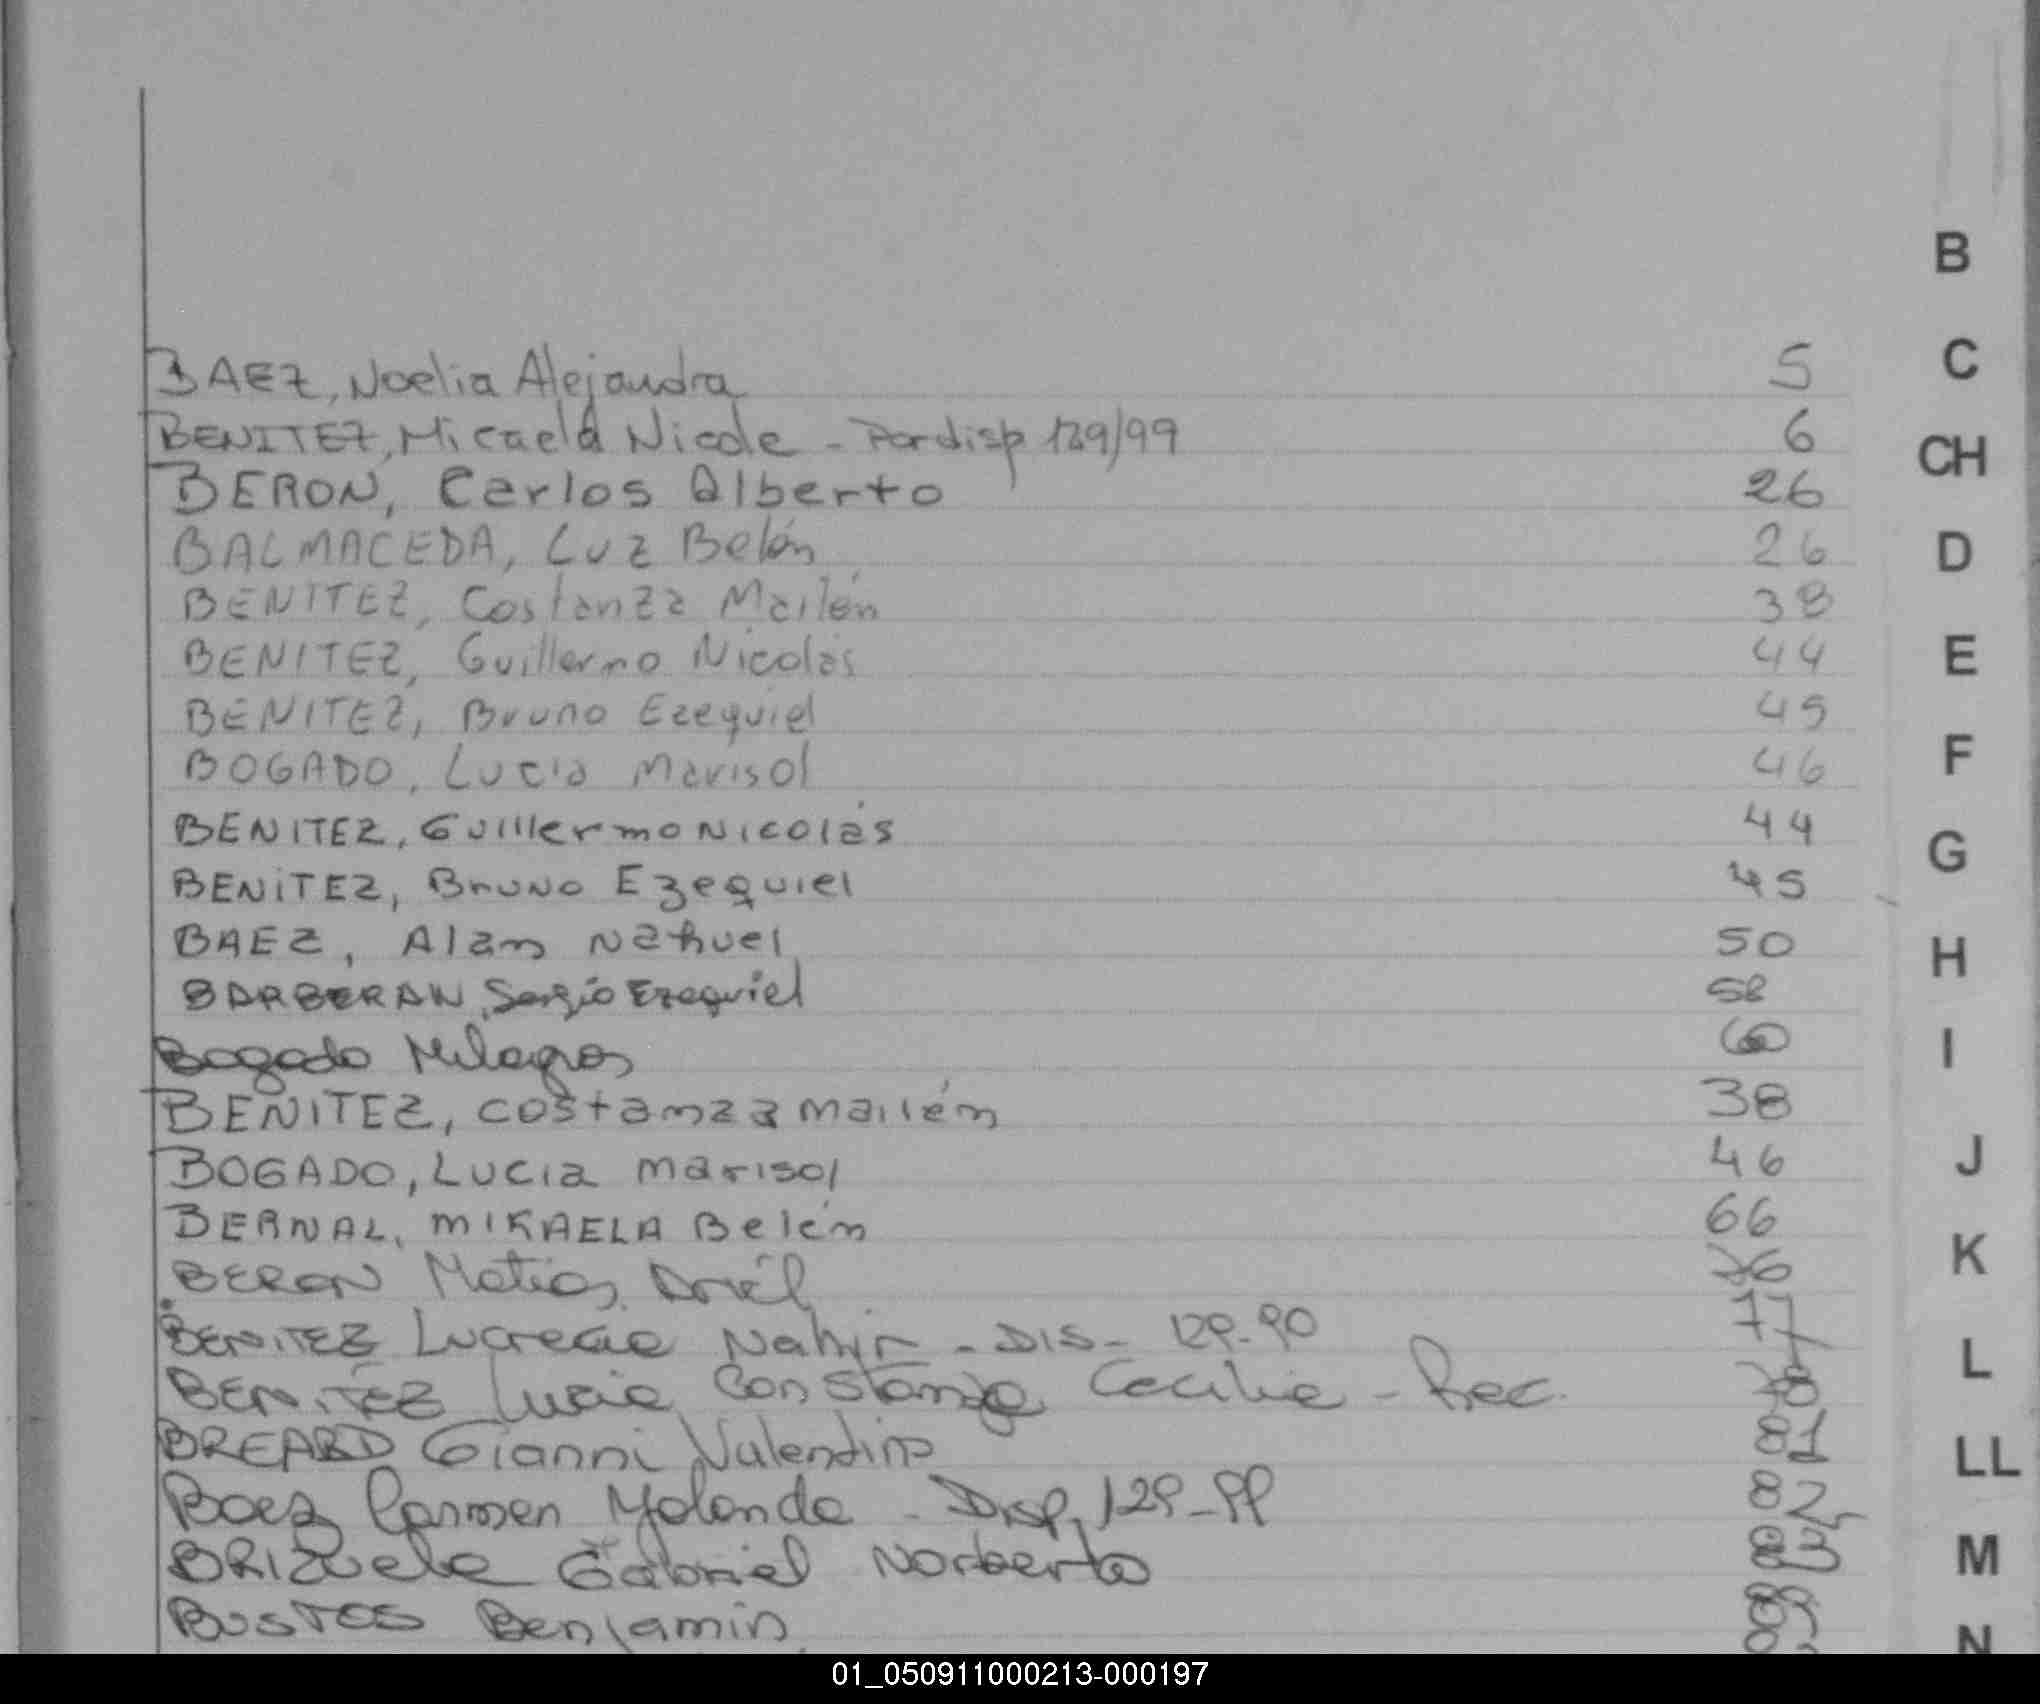 B
BAEZ, Noelia Alejandra 5
C
BENITEZ, Micaela Nicole - Por disp 129/99 6
CH
BERON, Carlos Alberto 26
BALMACEDA, Luz Belén 26
D
BENITEZ, Costanza Mailén 38
BENITEZ, Guillermo Nicolás 44
E
BENITEZ, Bruno Ezequiel 45
BOGADO, Lucia Marisol 46
F
BENITEZ, Guillermo Nicolás 44
G
BENITEZ, Bruno Ezequiel 45
BAEZ, Alan Nahuel 50
H
BARBERAN, Sergio Ezequiel 58
Bogado Milagros 60
I
BENITEZ, Costanza Mailén 38
BOGADO, Lucia Marisol 46
J
BERNAL, MIKAELA Belén 66
BERON Matias 76
K
BENITEZ Lucrecia Nahir - DIS - 129-90 77
BENITEZ Lucia Constanza Cecilia - Rec.
L
BREARD Gianni Valentino 81
LL
Baez Carmen Yolanda - Disp. 129-99 82
BRIZuela Gabriel Norberto 83
M
BUSTOS Benjamin
N
01_050911000213-000197